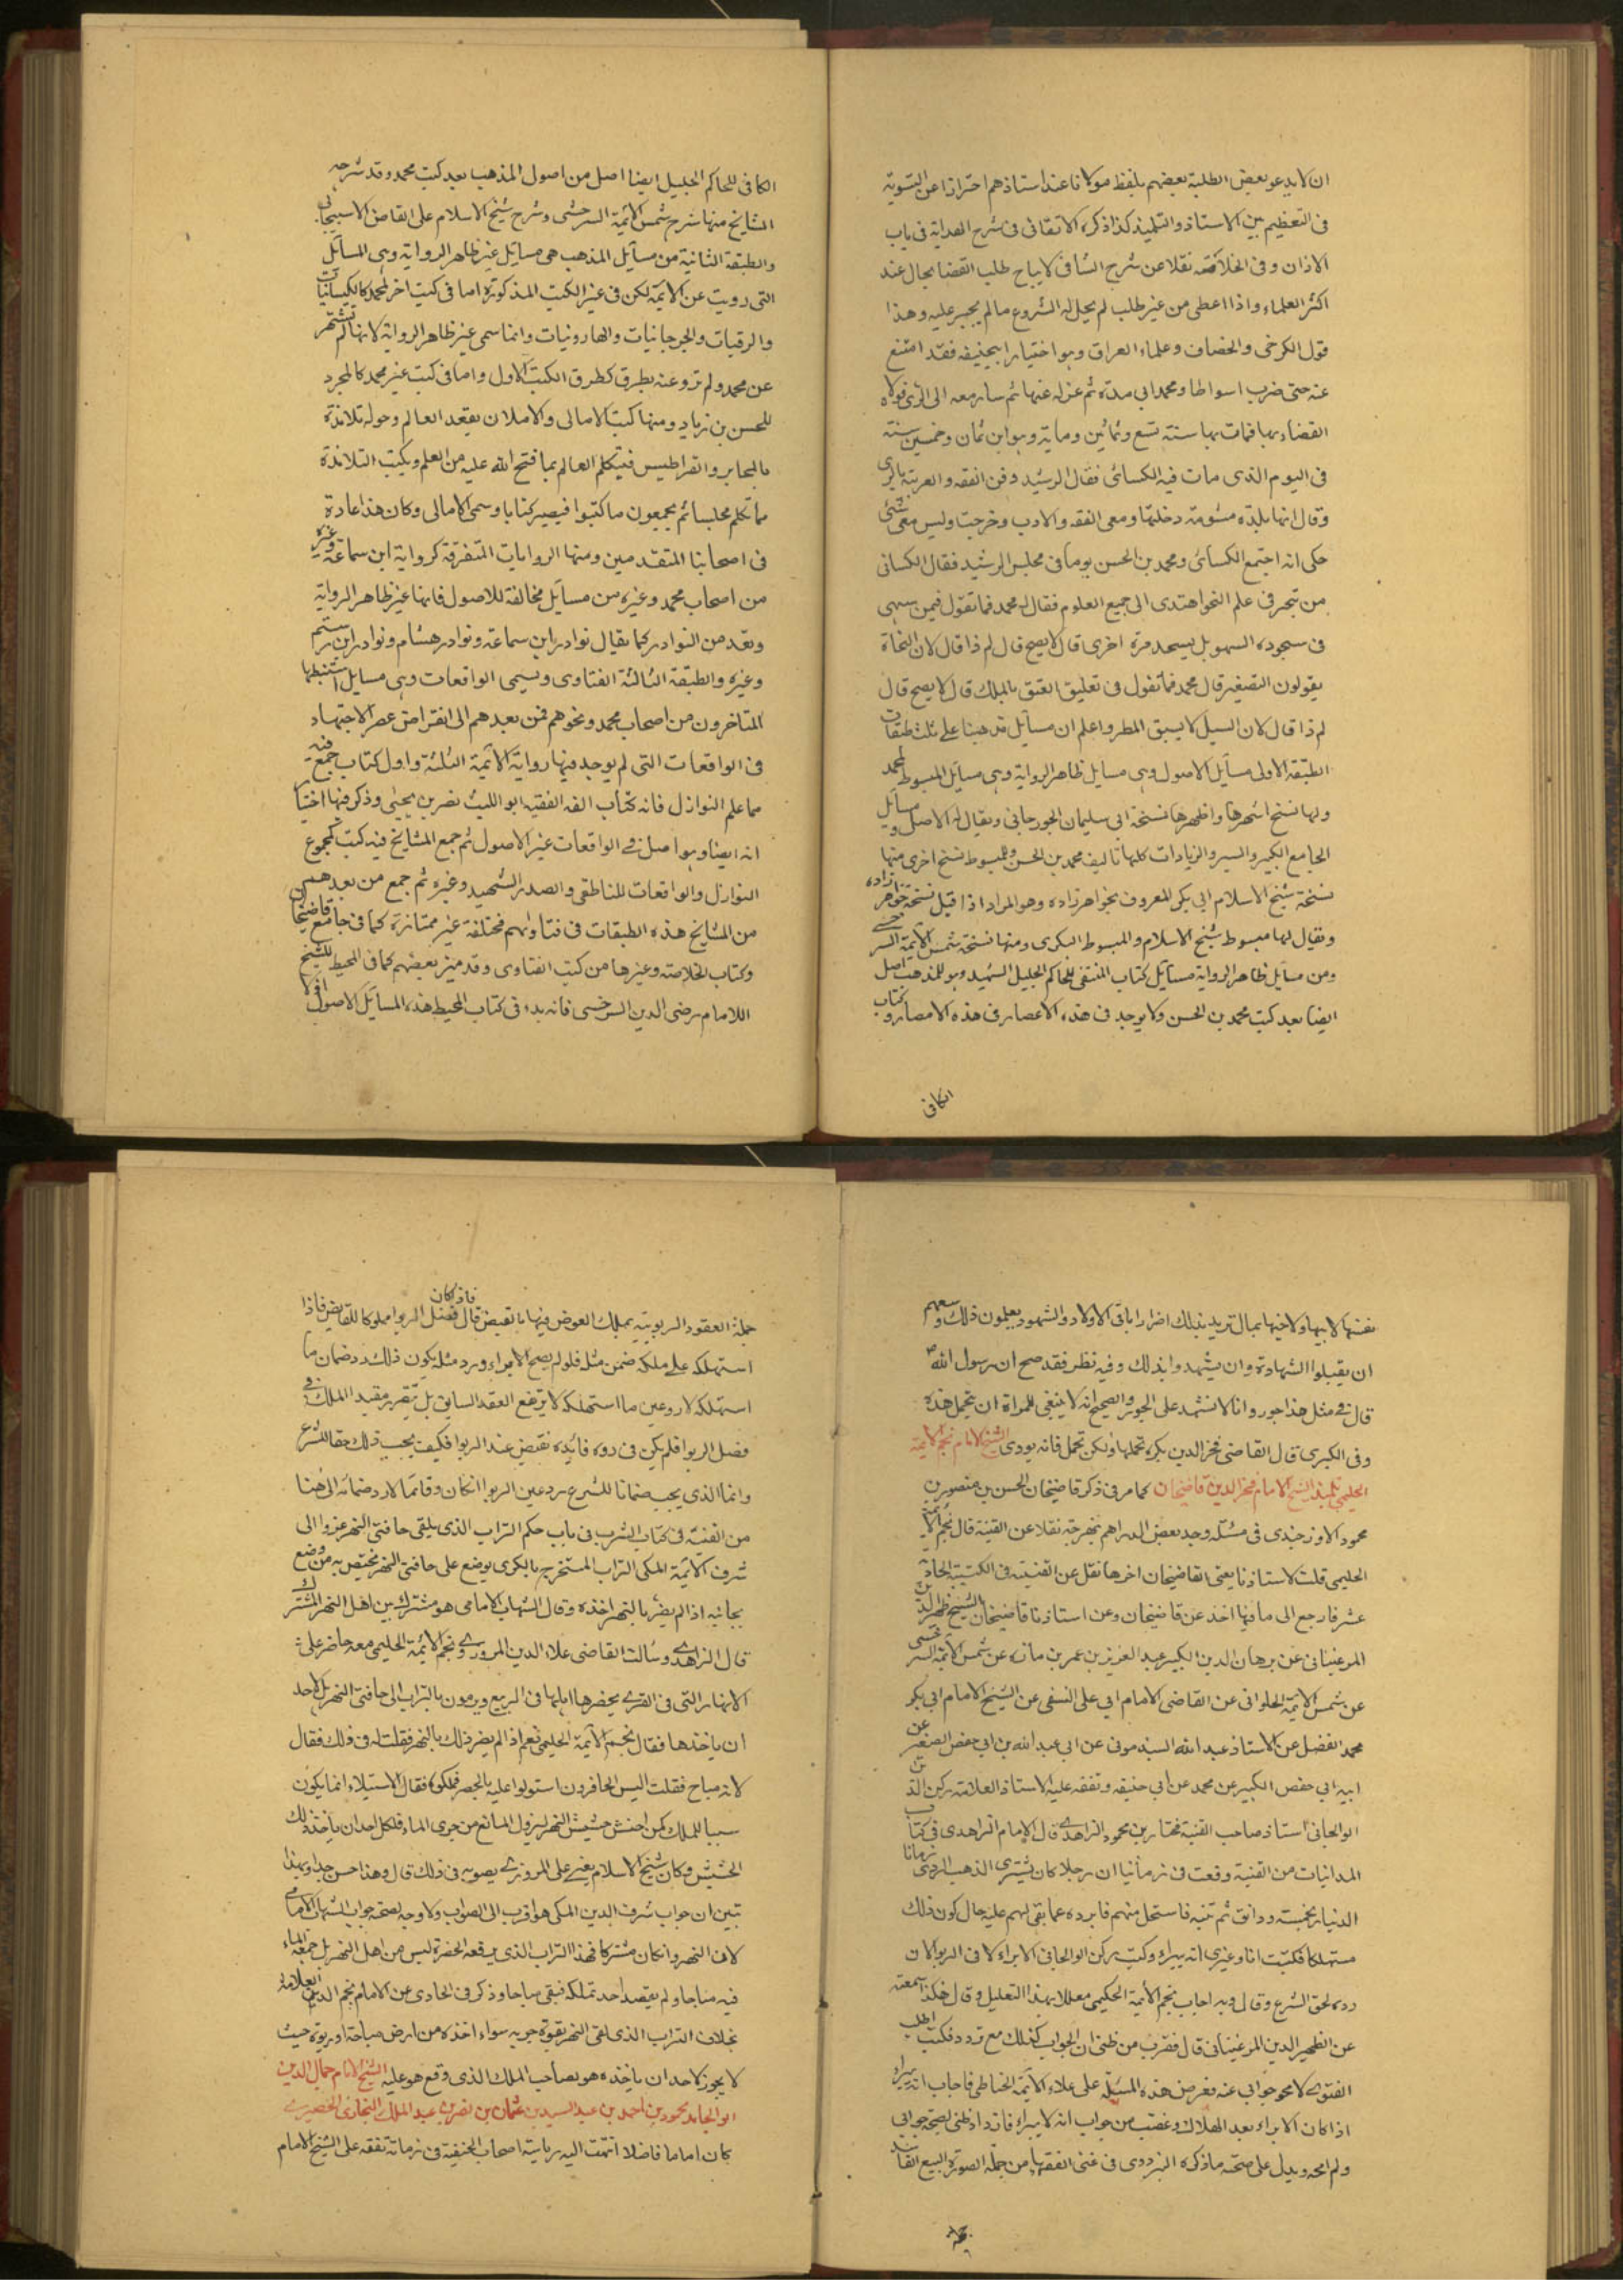 ان لا يدعو بعض الطلبة بعضهم بلفظ مولانا عند استاذهم احترازا عن التسوية
فى التعظيم بين الاستاذ والتلميذ كذا ذكره الاتقانى فى شرح الهداية فى باب
الاذان وفى الخلاصة نقلا عن شرح الشافى لا يباح طلب القضا بحال عند
اكثر العلماء واذا اعطى من غير طلب لم يحل له الشروع ما لم يجبر عليه وهذا
قول الكرخى والخصاف وعلماء العراق وهو اختيار ابيحنيفه فقد امتنع
عنه حتى ضرب اسواطا ومحمد ابى مدة ثم عزله عنها ثم سار معه الى الرى فولاه
القضاء بها فمات بها سنة تسع وثمانين وماية وهو ابن ثمان وخمسين سنة
فى اليوم الذى مات فيه الكسائى فقال الرشيد دفن الفقه والعربية بالرى
وقال انها بلدة مشومة دخلتها ومعى الفقه والادب وخرجت وليس معى شئ
حكى انه اجتمع الكسائى ومحمد بن الحسن يوما فى مجلس الرشيد فقال الكسائى
من تبحر فى علم النحو اهتدى الى جميع العلوم فقال له محمد فما تقول فيمن سهى
فى سجوده السهو بل يسجد مرة اخرى قال لا يصح قال لم ذا قال لان النحاة
يقولون التصغير قال محمد فما تقول فى تعليق العتق بالملك قال لا يصح قال
لم ذا قال لان السيل لا يسبق المطر واعلم ان مسائل مذهبنا على ثلث طبقات
الطبقة الاولى مسائل الاصول وهى مسايل ظاهر الرواية وهى مسائل المبسوط لمحمد
ولها نسخ اشهرها واظهرها نسخة ابى سليمان الجورجانى ويقال له الاصل ومسائل
الجامع الكبير والسير والزيادات كلها تاليف محمد بن الحسن وللمبسوط نسخ اخرى منها
نسخة شيخ الاسلام ابى بكر المعروف بخواهرزاده وهو المراد اذا قيل نسخة خواهرزاده
ويقال لها مبسوط شيخ الاسلام والمبسوط البكرى ومنها نسخة شمس الايمة السرخسى
ومن مسايل ظاهر الرواية مسائل كتاب المنتقى للحاكم الجليل الشهيد وهو للمذهب اصل
ايضا بعد كتب محمد بن الحسن ولا يوجد فى هذه الاعصار فى هذه الامصار وكتاب
الكافى
الكافى للحاكم الجليل ايضا اصل من اصول المذهب بعد كتب محمد وقد شرحه
المشايخ منها شرح شمس الايمة السرخسى وشرح شيخ الاسلام على القاضى الاسبيجابى
والطبقة الثانية من مسائل المذهب هى مسايل غير ظاهر الرواية وهى المسائل
التى رويت عن الايمة لكن فى غير الكتب المذكورة اما فى كتب اخر لمحمد كالكيسانيات
والرقيات والجرجانيات والهارونيات وانما سمى غير ظاهر الرواية لانها لم تشتهر
عن محمد ولم تروعنه بطرق كطرق الكتب الاول واما فى كتب غير محمد كالمجرد
للحسن بن زياد ومنها كتب الامالى والاملا ان يقعد العالم وحوله تلامذة
بالمحابر والقراطيس فيتكلم العالم بما فتح الله عليه من العلم ويكتب التلامذة
ما تكلم مجلسا ثم يجمعون ما كتبوا فيصير كتابا وسمى الامالى وكان هذا عادة
فى اصحابنا المتقدمين ومنها الروايات المتفرقة كرواية ابن سماعة وغيره
من اصحاب محمد وغيره من مسائل مخالفة للاصول فانها غير ظاهر الرواية
وتعد من النوادر كما يقال نوادر ابن سماعة ونوادر هشام ونوادر ابن رستم
وغيره والطبقة الثالثة الفتاوى ويسمى الواقعات وهى مسايل استنبطها
المتاخرون من اصحاب محمد ونحوهم فمن بعدهم الى انقراض عصر الاجتهاد
فى الواقعات التى لم يوجد فيها رواية الايمة الثلثة واول كتاب جمع فيه
مما علم النوازل فانه كتاب الفه الفقيه ابو الليث نصر بن يحيى وذكر فيها اختيا
انه ايضا وهو اصل فى الواقعات غير الاصول ثم جمع المشايخ فيه كتب كمجموع
النوازل والواقعات للناطفى والصدر الشهيد وغيره ثم جمع من بعدهم
من المشايخ هذه الطبقات فى فتاواهم مختلفة غير ممتازة كما فى جامع قاضيخان
وكتاب الخلاصة وغيرها من كتب الفتاوى وقد ميز بعضهم كما فى المحيط للشيخ
اللامام رضى الدين السرخسى فانه بدء فى كتاب المحيط هذه المسائل الاصول اولا
نفسها لابيها ولاخيها بمال تريد بذلك اضرارا باقى الاولاد والشهود يعلمون ذلك وسعهم
ان يقبلوا الشهادة وان يشهدوا بذلك وفيه نظر فقد صح ان رسول الله
قال فى مثل هذا جور وانا لا نشهد على الجور والصحيح انه لا ينبغى للمراة ان تحمل هذه
وفى الكبرى قال القاضى فخر الدين يكره تحملها ولكن تحمل فانه يودى الشيخ الامام نجم الايمة
الحليمى تلميذ الشيخ الامام فخر الدين قاضيخان كما مر فى ذكر قاضيخان الحسن بن منصور بن
محمود الاوزجندى فى مسئلة وجد بعض الدراهم بنهرجة نقلا عن القنية قال نجم الايمة
الحليمى قلت لاستاذنا يعنى القاضيخان اخرها نقل عن القنية فى الكتيبة الحادية
عشر فارجع الى ما فيها اخذ عن قاضيخان وعن استاذنا قاضيخان الشيخ ظهير الدين
المرغينانى عن برهان الدين الكبير عبد العزيز بن عمر بن مازه عن شمس الايمة السرخسى
عن شمس الايمة الحلوانى عن القاضى الامام ابى على النسفى عن الشيخ الامام ابى بكر
محمد الفضل عن الاستاذ عبد الله السبذمونى عن ابى عبد الله بن ابى حفص الصغير عن
ابيه ابى حفص الكبير عن محمد عن ابى حنيفه وتفقه عليه الاستاذ العلامة ركن الدين
الوالجانى استاذ صاحب القنية مختار بن محمود الزاهدى قال الامام الزاهدى فى كتاب
المداينات من القنية وقعت فى زماننا ان رجلا كان يشترى الذهب الردى زمانا
الدينار بخمسة دوانق ثم تنبه فاستحل منهم فابرده عما بقى لهم عليه حال كون ذلك
مستهلكا فكتبت انا وغيرى انه يبراء وكتب ركن الوالجانى الابراء لا فى الربوا لان
رده لحق الشرع وقال وبه اجاب نجم الايمة الحكيمى معللا بهذا التعليل وقال هكذا سمعته
عن الظهير الدين المرغينانى قال فقرب من ظنى ان الجواب كذلك مع تردد فكتب اطلب
الفتوى لامحو جوابى عنه فعرض هذه المسئلة على علاء الايمة الخناطى فاجاب انه يبراء
اذا كان الابراء بعد الهلاك وغضب من جواب انه لا يبراء فازداد ظنى لصحة جوابى
ولم امحه ويدل على صحته ما ذكره البزدوى فى غنى الفقهاء من جملة الصورة البيع الفاسد
جملة العقود الربوية يملك العوض فيها بالقبض قال فاذا كان فضل الربوا مملوكا للقابض فاذا
استهلكه على ملكه ضمن مثله فلو لم يصح الابراء ورد مثله يكون ذلك رد ضمان ما
استهلكه لا رد عين ما استهلكه لا يرتفع العقد السابق بل يتقرر مفيد الملك فى
فصل الربوا فلم يكن فى رده فايدة نقض عند الربوا فكيف يجب ذلك حقا للشرع
وانما الذى يجب ضمانا للشرع رد عين الربوا ان كان وقائما لا رد ضمانه الى هنا
من القنية فى كتاب الشرب فى باب حكم التراب الذى يلقى حافتى النهر عزوا الى
شرف الايمة المكى التراب المستخرج بالكرى يوضع على حافتى النهر يختص به من وضع
بجانبه اذا لم يضر بالنهر اخذه وقال الشهاب الامامى هو مشترك بين اهل النهر المشترك
قال الزاهدى وسالت القاضى علاء الدين المروزى ونجم الايمة الحليمى معه حاضر على
الانهار التى فى القرى يحفرها اهلها فى الربيع ويرمون بالتراب الى حافتى النهر بل لاحد
ان ياخذها فقال نجم الايمة الحليمى نعم اذا لم يضر ذلك بالنهر فقلت له فى ذلك فقال
لانه مباح فقلت اليس الحافرون استولوا عليه بالحفر فملكوه فقال الاستيلاء انما يكون
سببا للملك كمن احتش حشيش النهر ليزول المانع من جرى الماء فلكل احد ان ياخذ ذلك
الحشيش وكان شيخ الاسلام يغير على المروزى يصوبه فى ذلك قال وهذا حسن جدا وبهذا
تبين ان جواب شرف الدين المكى هو اقرب الى الصواب ولا وجه لصحة جواب الشهاب الامامى
لان النهر وان كان مشتركا فهذا التراب الذى يرفعه الحفرة ليس من اهل النهر بل جمعه الماء
فيه مباحا ولم يقصد احد تملكه فبقى مباحا وذكر فى الحاوى عن الامام نجم الدين العلامة
بخلاف التراب الذى القى النهر بقوة جريه سواء اخذه من ارض مباحة او ربوة حيث
لا يجوز لاحد ان ياخذه هو بصاحب الملك الذى وقع هو عليه الشيخ الامام جمال الدين
ابو الحامد محمود بن احمد بن عبد السيد بن عثمان بن نصر بن عبد الملك البخارى الحصيرى
كان اماما فاضلا انتهت اليه رياسة اصحاب الحنفية فى زمانه تفقه على الشيخ الامام